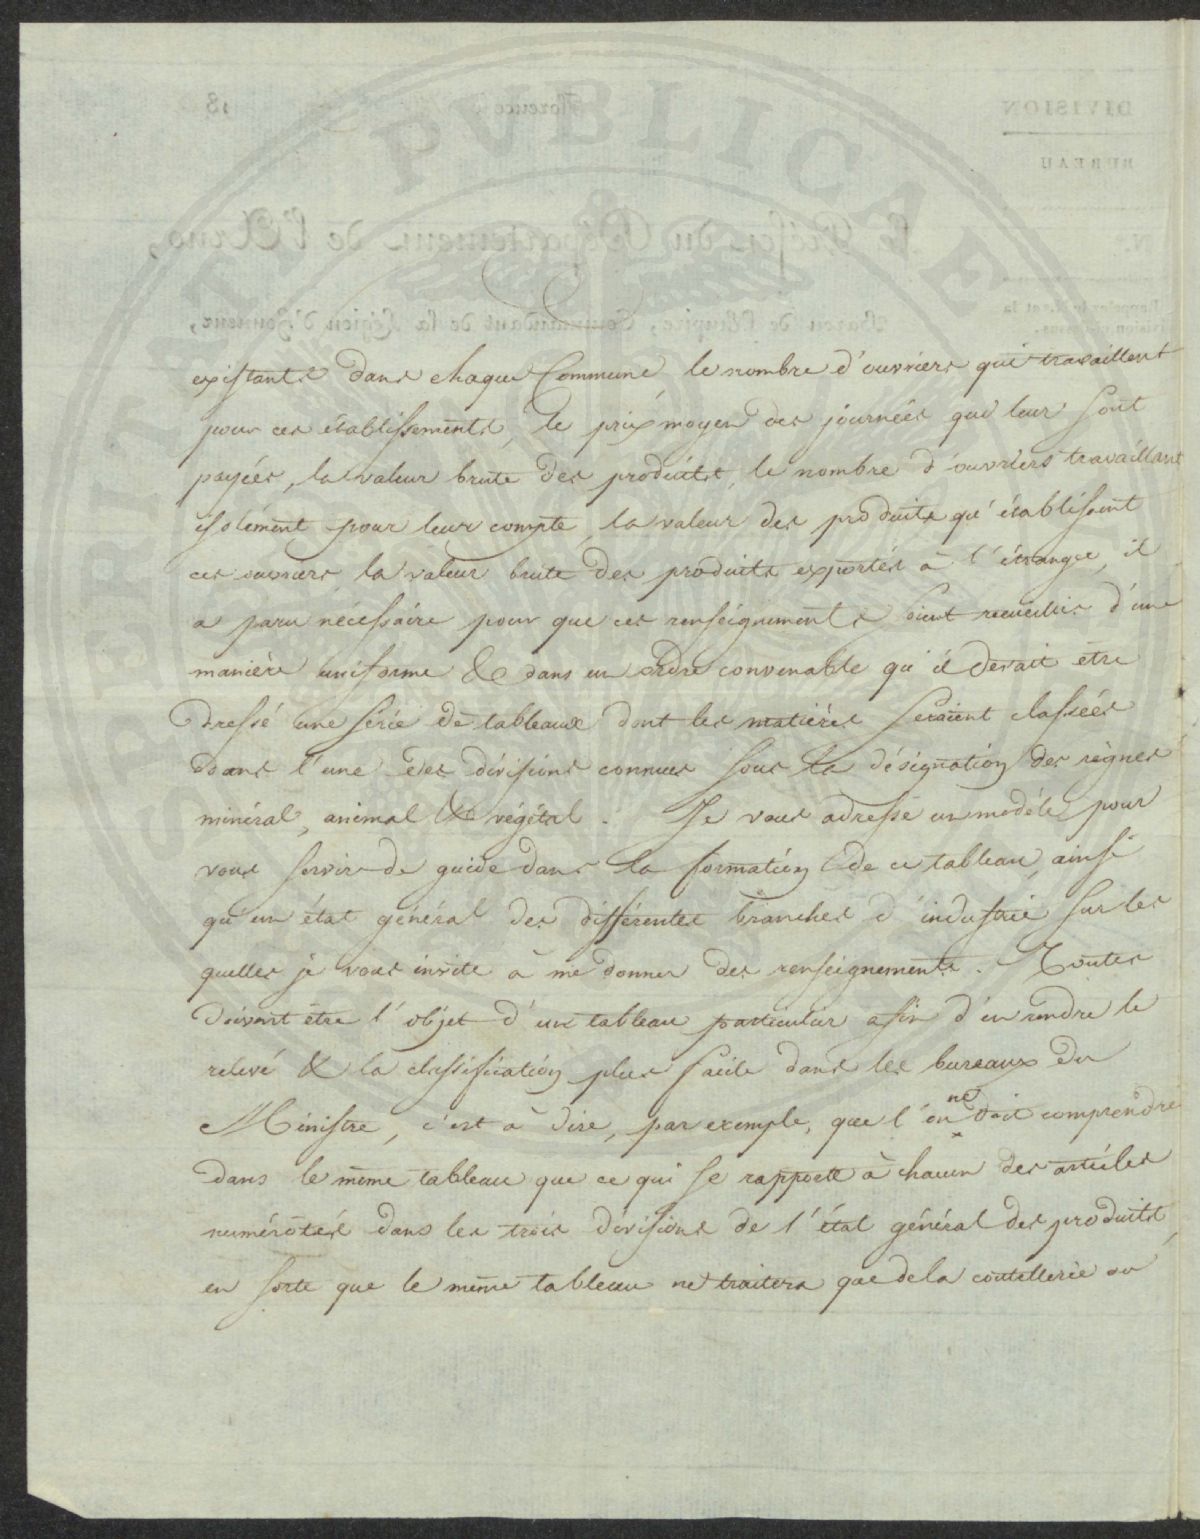 existants dans chaque Commune le nombre d'ouvriers qui travaillent
pour ces établissements, le prix moyen des journées qui leur sont
payées, la valeur brute des produits, le nombre d'ouvriers travaillant
isolément pour leur compte, la valeur des produits qu'établissent
ces ouvriers, la valeur brute des produits exportés à l'étranger, il
a paru nécessaire pour que ces renseignements soient recueillis d'une
manière uniforme & dans un ordre convenable qu'il devait être
dressé une série de tableaux dont les matières seraient classées
dans l'une des divisions connues sous la désignation des règnes
minéral, animal & végétal. Je vous adresse un modèle pour
vous servir de guide dans la formation de ce tableau, ainsi
qu'un état général des différentes branches d'industrie sur les
quelles je vous invite à me donner des renseignements. Toutes
doivent être l'objet d'un tableau particulier afin d'en rendre le
relevé & la classification plus facile dans les bureaux du
Ministre, c'est à dire, par exemple, que l'on ne doit comprendre
dans le même tableau que ce qui se rapporte à chacun des articles
numérotés dans les trois divisions de l'état général des produits,
en sorte que le même tableau ne traitera que de la coutellerie ou